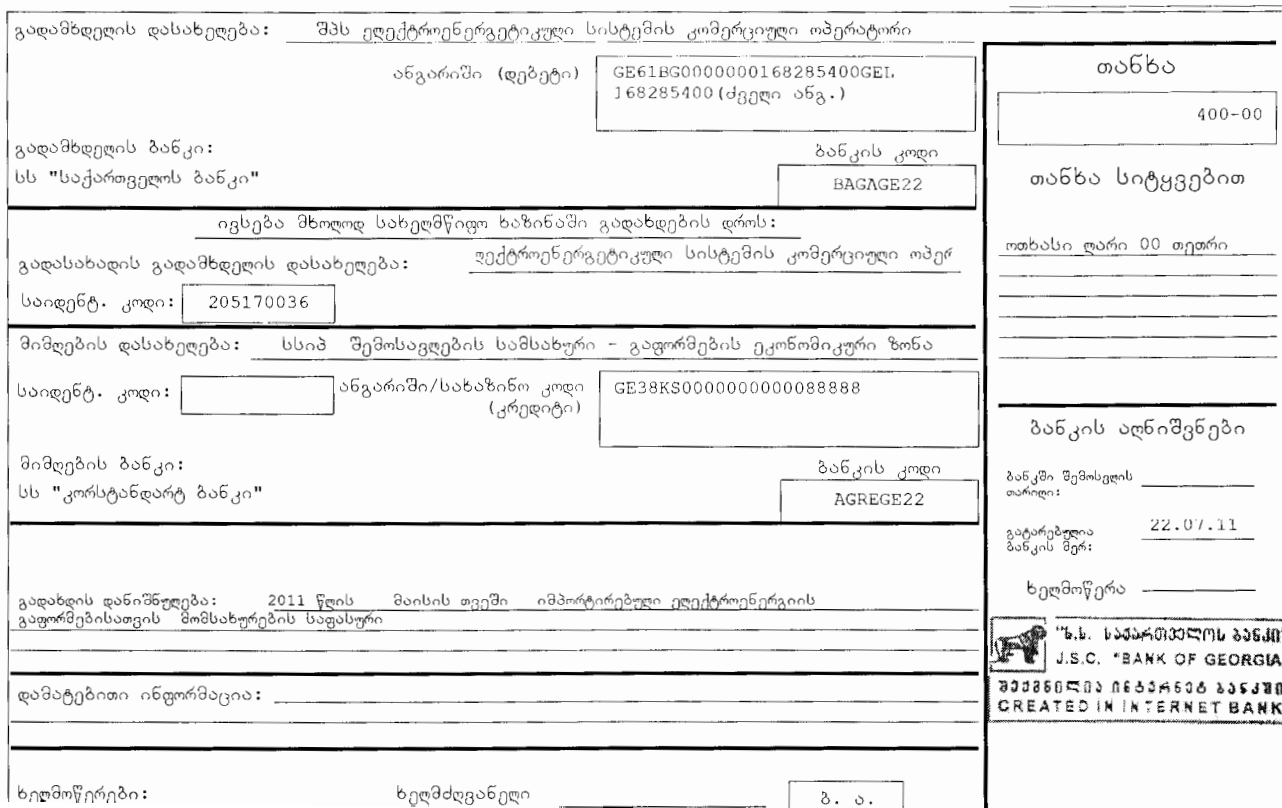 გადამხდელის დასახელება: შპს ელექტროენერგეტიკული სისტემის კომერციული ოპერატორი
ანგარიში (დებეტი)
GE61BG0000000168285400GEL
168285400(ძველი ანგ.)
გადამხდელის ბანკი:
სს "საქართველოს ბანკი"
ბანკის კოდი
BAGAGE22
ივსება მხოლოდ სახელმწიფო ხაზინაში გადახდების დროს:
გადასახადის გადამხდელის დასახელება: ლექტროენერგეტიკული სისტემის კომერციული ოპერ
საიდენტ. კოდი: 205170036
მიმღების დასახელება: სსიპ შემოსავლების სამსახური - გაფორმების ეკონომიკური ზონა
საიდენტ. კოდი:
ანგარიში/სახაზინო კოდი
(კრედიტი)
GE38KS0000000000088888
მიმღების ბანკი:
სს "კორსტანდარტ ბანკი"
ბანკის კოდი
AGREGE22
გადახდის დანიშნულება: 2011 წლის მაისის თვეში იმპორტირებული ელექტროენერგიის
გაფორმებისათვის მომსახურების საფასური
დამატებითი ინფორმაცია:
ხელმოწერები: ხელმძღვანელი
ბ. ა.
თანხა
400-00
თანხა სიტყვებით
ოთხასი ლარი 00 თეთრი
ბანკის აღნიშვნები
ბანკში შემოსვლის
თარიღი:
გატარებულია
ბანკის მერ:
22.07.11
ხელმოწერა
"ს.ს. საქართველოს ბანკი
J.S.C. "BANK OF GEORGIA
შექმნილია ინტერნეტ ბანკში
CREATED IN INTERNET BANK